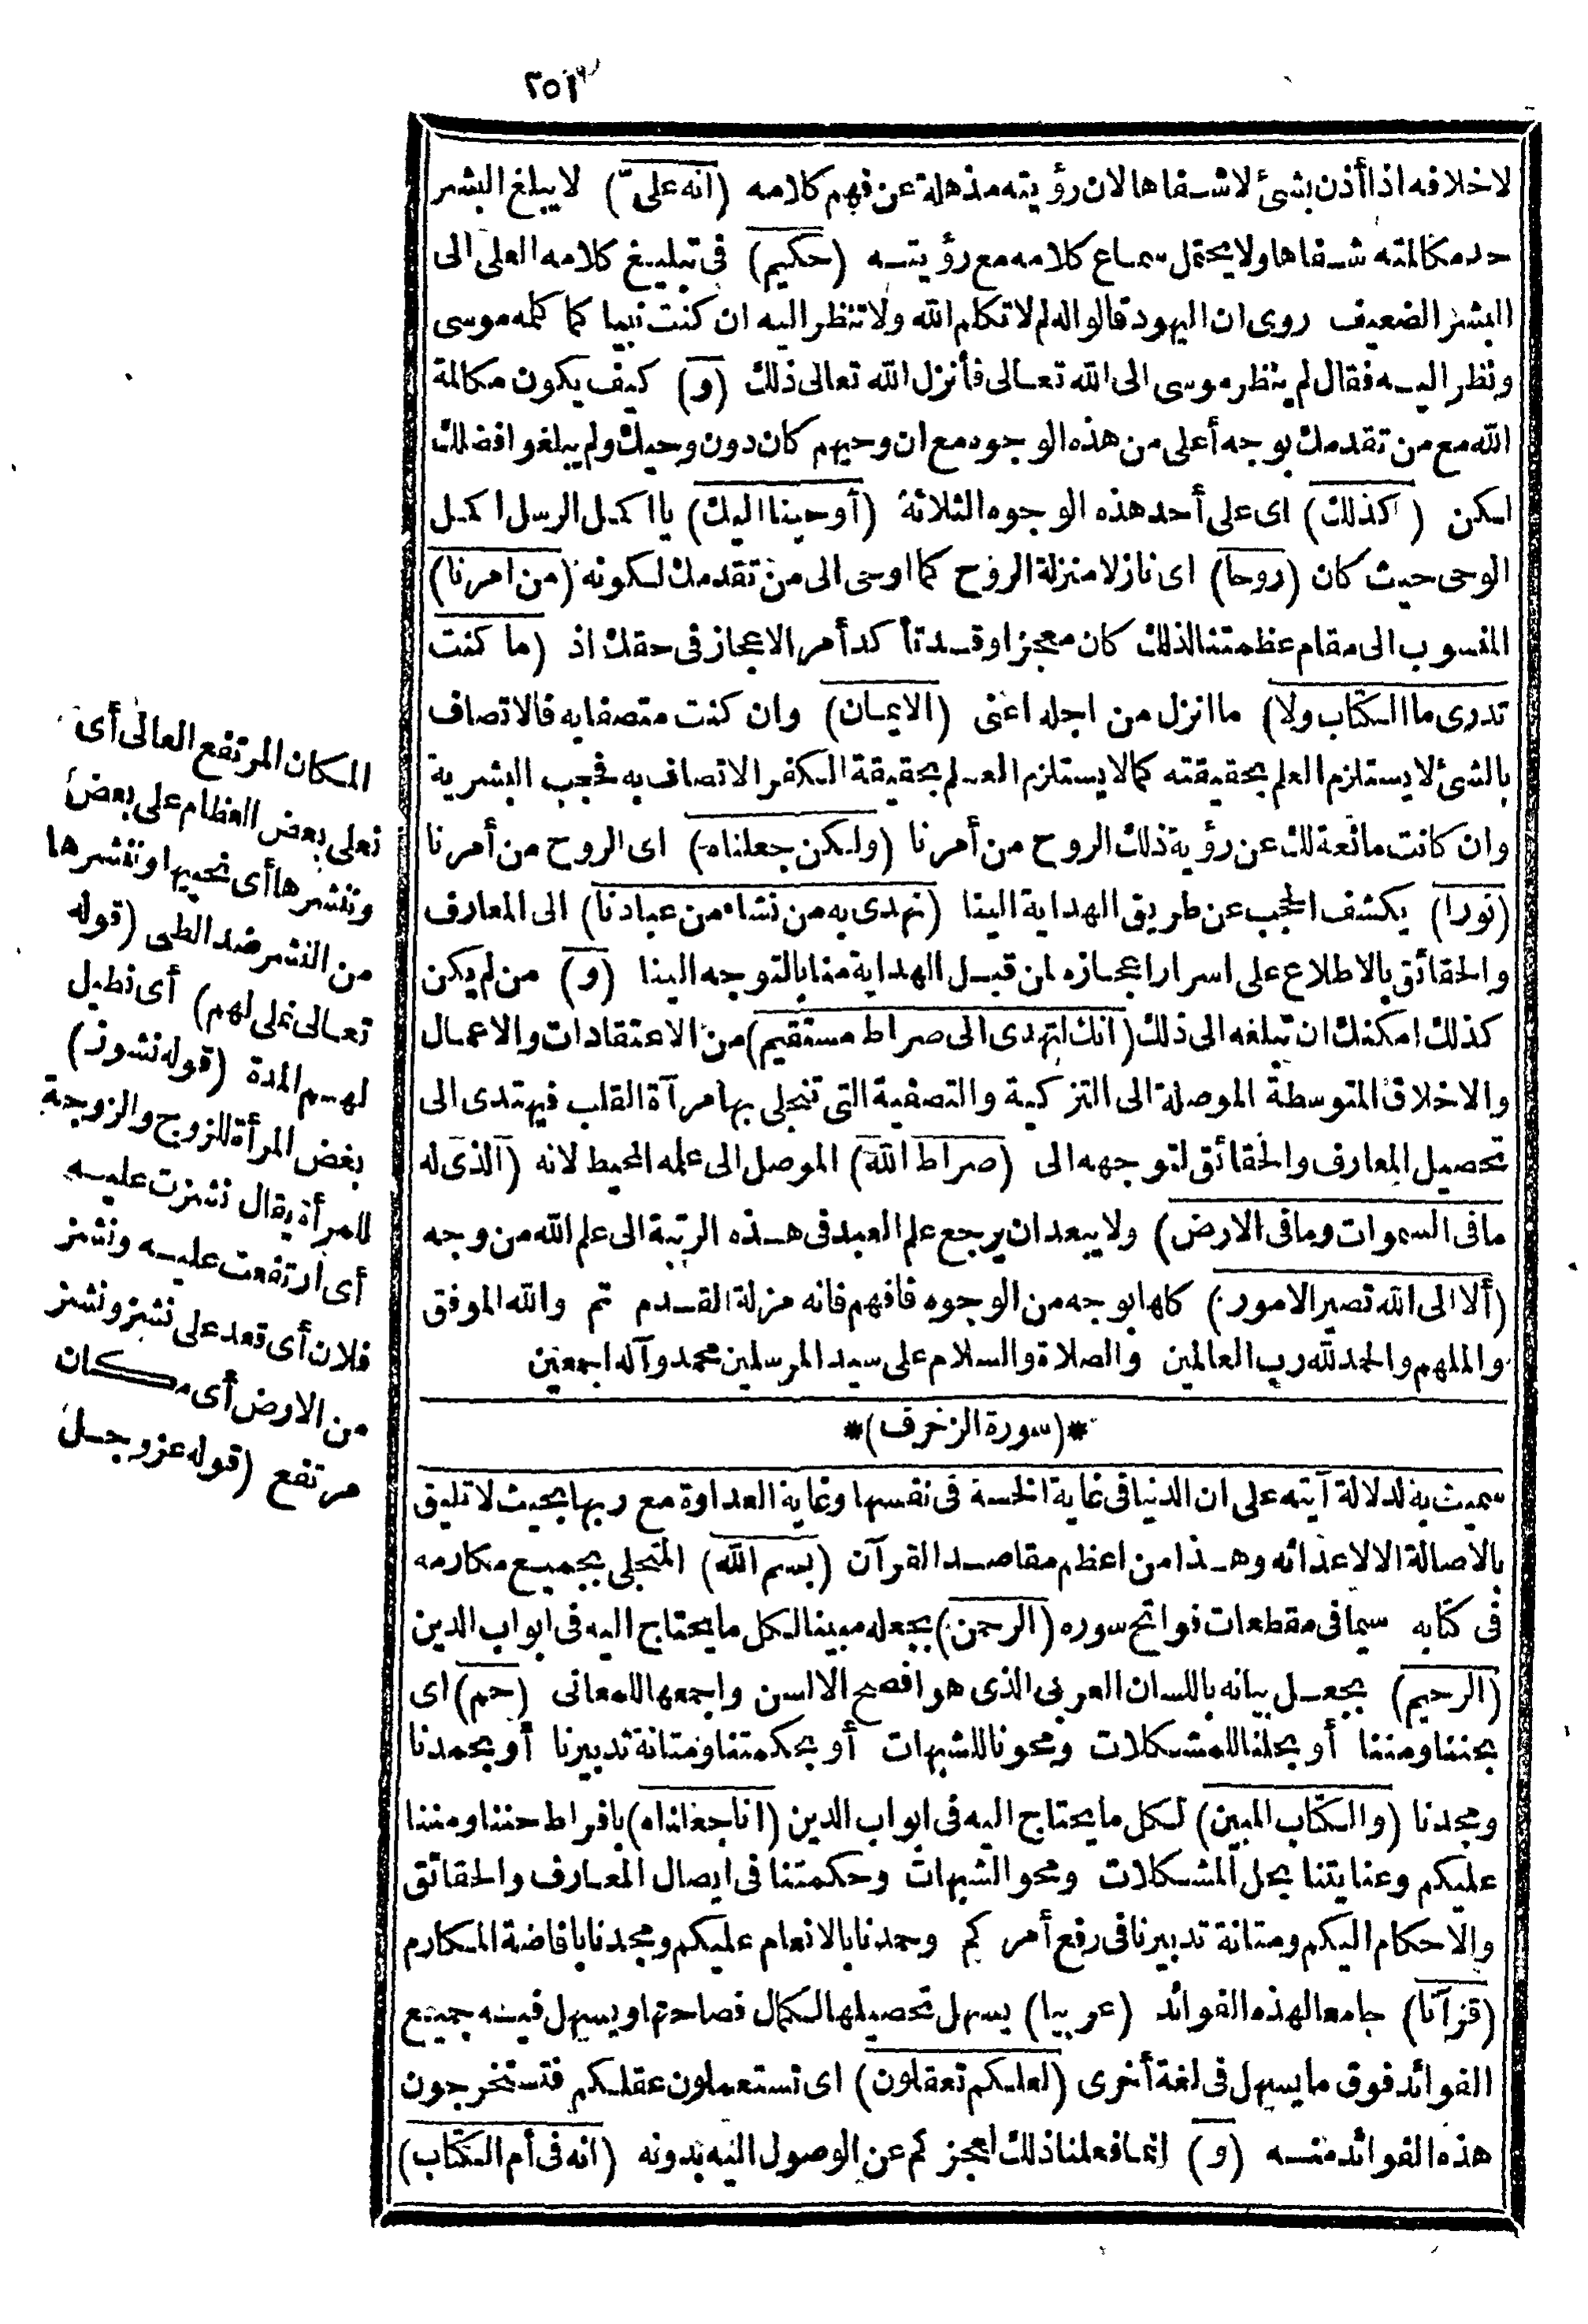 ٢٥١
لاخلافه اذا أذن بشئ لا شفاها لان رؤيته مذهلة عن فهم كلامه (انه علىّ) لا يبلغ البشر
حد مكالمته شفاها ولا يحتمل سماع كلامه مع رؤيته (حكيم) فى تبليغ كلامه العلى الى
البشر الضعيف روى ان اليهود قالوا له لم لا تكلم الله ولا تنظر اليه ان كنت نبيا كما كلمه موسى
ونظر اليه فقال لم ينظر موسى الى الله تعالى فأنزل الله تعالى ذلك (و) كيف يكون مكالمة
الله مع من تقدمك بوجه أعلى من هذه الوجوه مع ان وحيهم كان دون وحيك ولم يبلغوا فضلك
لكن (كذلك) اى على أحد هذه الوجوه الثلاثة (أوحينا اليك) يا اكمل الرسل اكمل
الوحى حيث كان (روحا) اى نازلا منزلة الروح كما اوحى الى من تقدمك لكونه (من امرنا)
المنسوب الى مقام عظمتنا لذلك كان معجزا وقد تأكد أمر الاعجاز فى حقك اذ (ما كنت
تدرى ما الكتاب ولا) ما انزل من اجله اعنى (الايمان) وان كنت متصفا به فالاتصاف
بالشئ لا يستلزم العلم بحقيقته كما لا يستلزم العلم بحقيقة الكفر الاتصاف به فحجب البشرية
وان كانت مانعة لك عن رؤية ذلك الروح من أمرنا (ولكن جعلناه) اى الروح من أمرنا
(نورا) يكشف الحجب عن طريق الهداية الينا (نهدى به من نشاء من عبادنا) الى المعارف
والحقائق بالاطلاع على اسرار اعجازه لمن قبل الهداية منا بالتوجه الينا (و) من لم يكن
كذلك امكنك ان تبلغه الى ذلك (انك لتهدى الى صراط مستقيم) من الاعتقادات والاعمال
والاخلاق المتوسطة الموصلة الى التزكية والتصفية التى تنجلى بها مرآة القلب فيهتدى الى
تحصيل المعارف والحقائق لتوجهه الى (صراط الله) الموصل الى علمه المحيط لانه (الذى له
ما فى السموات وما فى الارض) ولا يبعد ان يرجع علم العبد فى هذه الرتبة الى علم الله من وجه
(ألا الى الله تصير الامور) كلها بوجه من الوجوه فافهم فانه مزلة القدم تم والله الموفق
والملهم والحمد لله رب العالمين والصلاة والسلام على سيد المرسلين محمد وآله اجمعين
*(سورة الزخرف)*
سميت به لدلالة آيته على ان الدنيا فى غاية الخسة فى نفسها وغاية العداوة مع ربها بحيث لا تليق
بالاصالة الا لاعدائه وهذا من اعظم مقاصد القرآن (بسم الله) المتجلى بجميع مكارمه
فى كتابه سيما فى مقطعات فواتح سوره (الرحمن) بجعله مبينا لكل ما يحتاج اليه فى ابواب الدين
(الرحيم) بجعل بيانه باللسان العربى الذى هو افصح الالسن واجمعها للمعانى (حم) اى
بحننا ومننا أو بحلنا للمشكلات ومحونا للشبهات أو بحكمتنا ومتانة تدبيرنا أو بحمدنا
ومجدنا (والكتاب المبين) لكل ما يحتاج اليه فى ابواب الدين (انا جعلناه) بافراط حننا ومننا
عليكم وعنايتنا بحل المشكلات ومحو الشبهات وحكمتنا فى ايصال المعارف والحقائق
والاحكام اليكم ومتانة تدبيرنا فى رفع أمركم وحمدنا بالانعام عليكم ومجدنا بافاضة المكارم
(قرآنا) جامعا لهذه الفوائد (عربيا) يسهل تحصيلها لكمال فصاحتها ويسهل فيه جميع
الفوائد فوق ما يسهل فى لغة أخرى (لعلكم تعقلون) اى تستعملون عقلكم فتستخرجون
هذه الفوائد منه (و) انما فعلنا ذلك لعجزكم عن الوصول اليه بدونه (انه فى أم الكتاب)
المكان المرتفع العالى أى
تعلى بعض العظام على بعض
وننشرها أى نحييها وننشرها
من النشر ضد الطى (قوله
تعالى نملى لهم) أى نطيل
لهم المدة (قوله نشوز)
بغض المرأة للزوج والزوجة
للمرأة يقال نشزت عليه
أى ارتفعت عليه ونشز
فلان أى قعد على نشز ونشز
من الارض أى مكان
مرتفع (قوله عز وجل